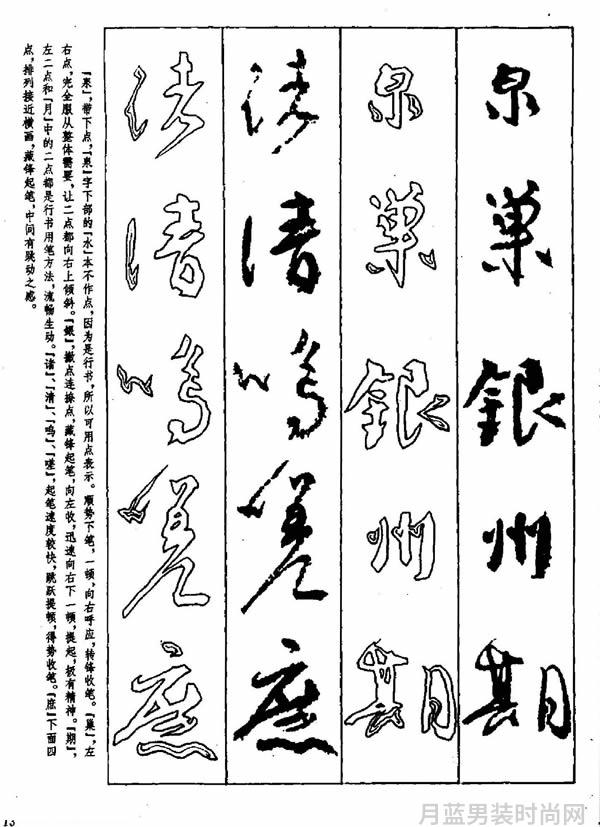 泉巢銀州期
泉巢銀州期
诸清鸣嗟庶
诸清鸣嗟庶
「泉」，带下点，「泉」字下部的「水」本不作点，因为是行书，所以可用点表示。顺势下笔，一顿，向右呼应，转锋收笔。「巢」，左
右点，完全服从整体需要，让二点都向右上倾斜。「銀」，撇点连捺点，藏锋起笔，向左收，迅速向右下一顿，提起，极有精神。「期」，
左二点和「月」中的二点都是行书用笔方法，流畅生动。「诸」、「清」、「鸣」、「嗟」，起笔速度较快，跳跃提顿，得势收笔。「庶」下面四
点，排列接近横画，藏锋起笔，中间有跳动之感。
月蓝男装时尚网